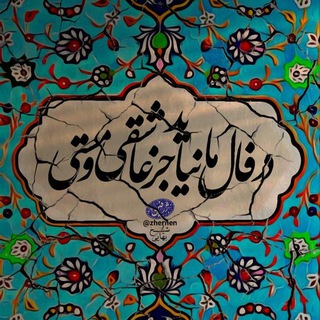 در فال ما نیاید جز عاشقی و مستی
@zhernen